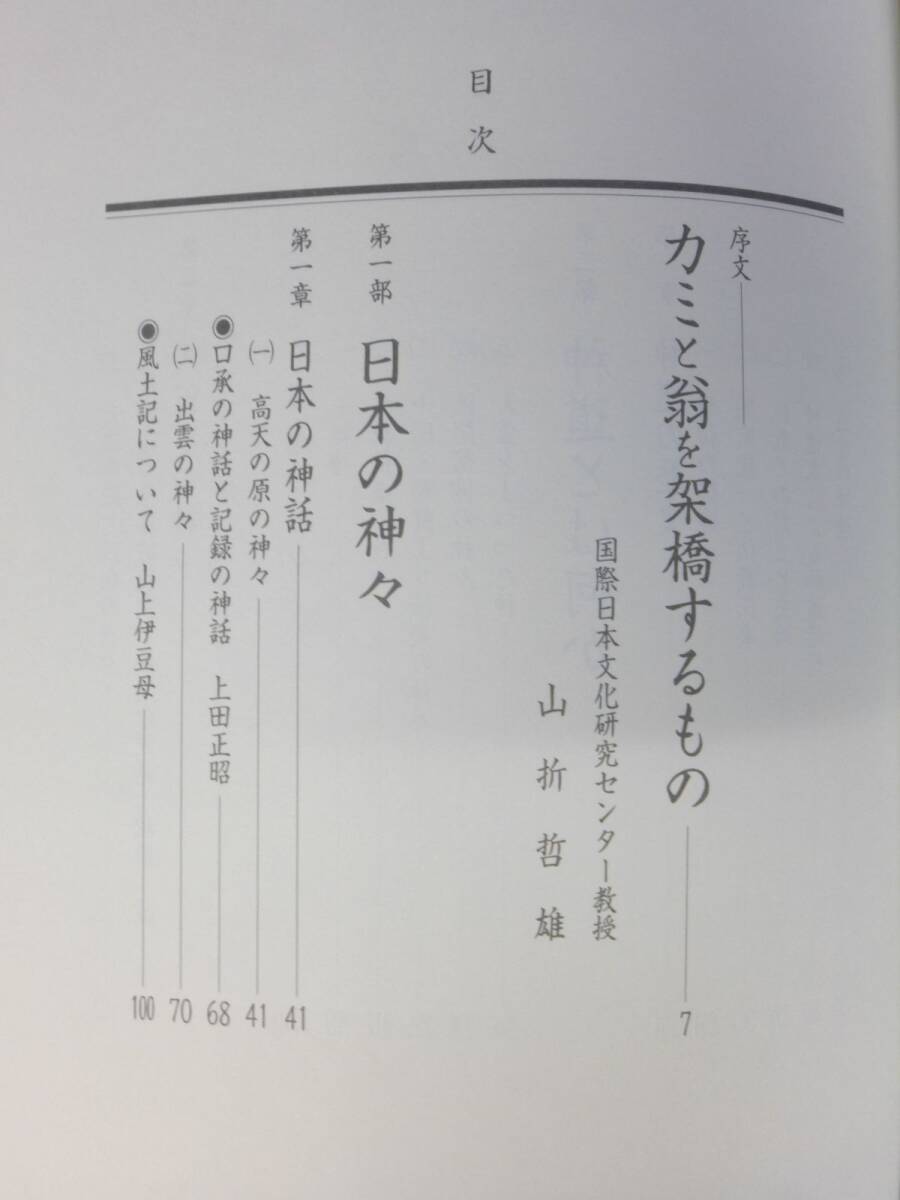 目次
序文
カミと翁を架橋するもの 7
国際日本文化研究センター教授
山折哲雄
第一部 日本の神々
第一章 日本の神話 41
㈠ 高天の原の神々 41
◉口承の神話と記録の神話 上田正昭 68
㈡ 出雲の神々 70
◉風土記について 山上伊豆母 100